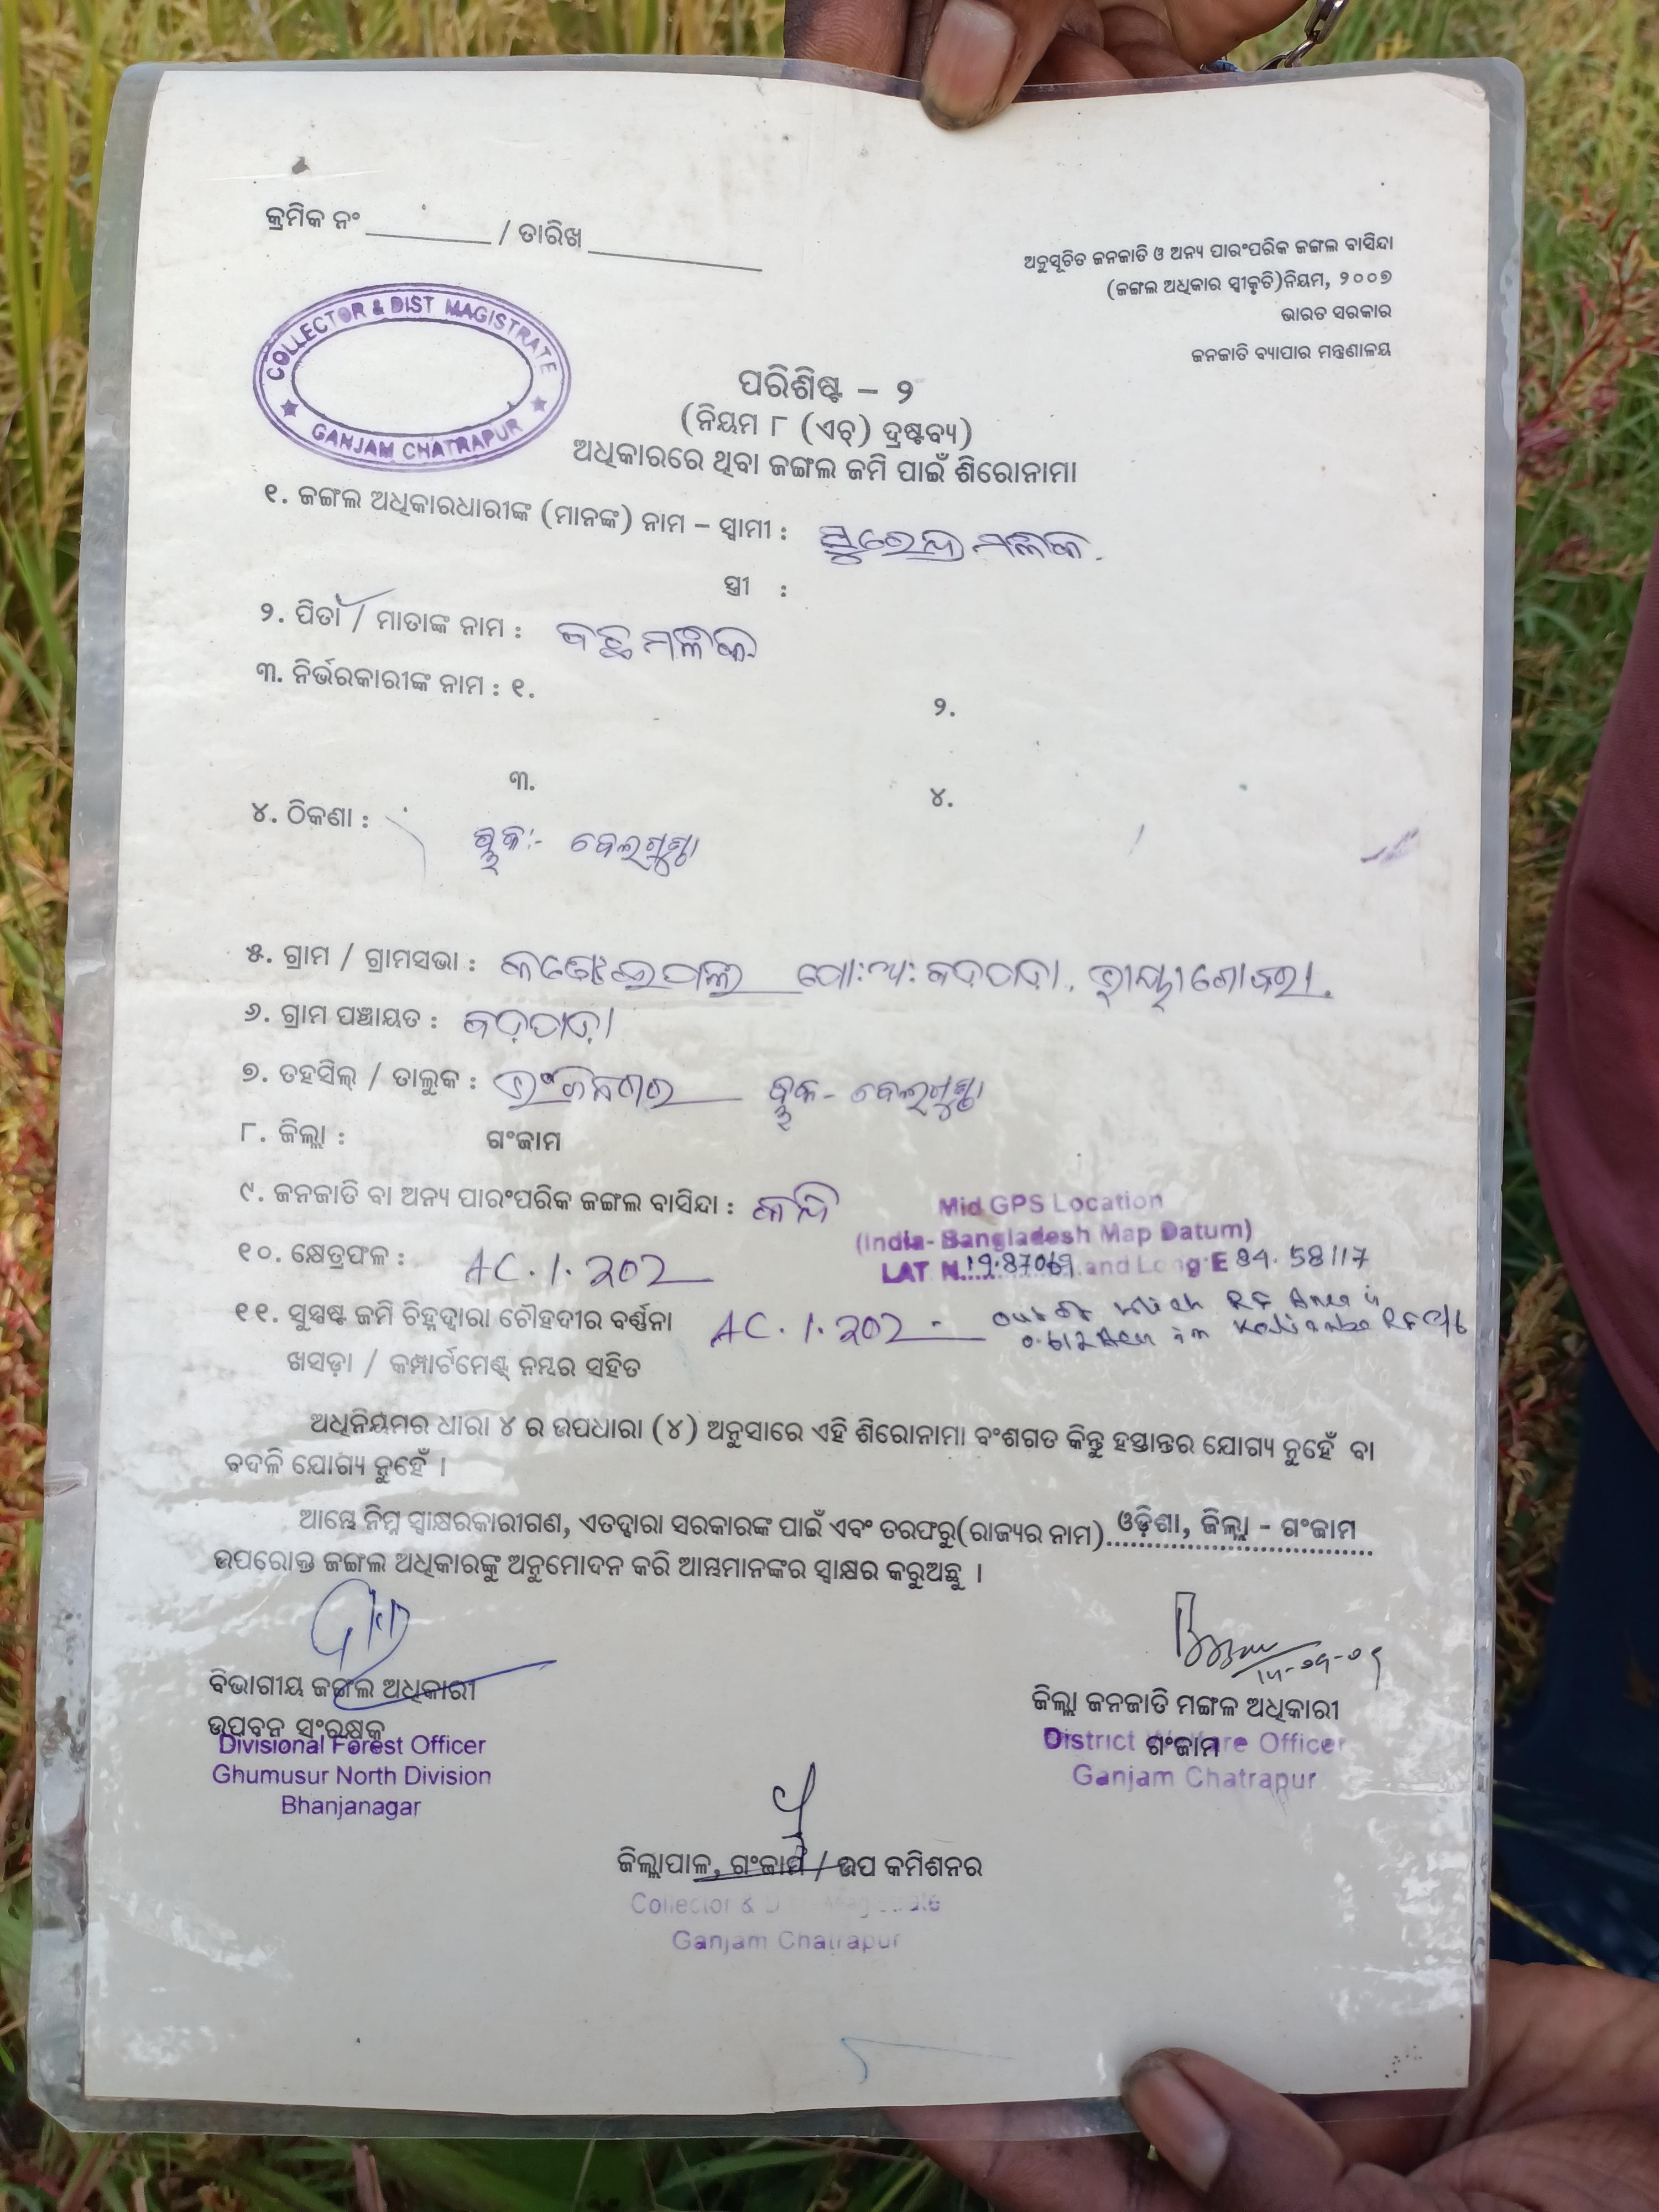 କ୍ରମିକ ନଂ ________ / ତାରିଖ ____________
ଅନୁସୂଚିତ ଜନଜାତି ଓ ଅନ୍ୟ ପାରଂପରିକ ଜଙ୍ଗଲ ବାସିନ୍ଦା
(ଜଙ୍ଗଲ ଅଧିକାର ସ୍ୱୀକୃତି)ନିୟମ, ୨୦୦୭
ଭାରତ ସରକାର
ଜନଜାତି ବ୍ୟାପାର ମନ୍ତ୍ରଣାଳୟ
COLLECTOR & DIST MAGISTRATE
GANJAM CHATRAPUR
ପରିଶିଷ୍ଟ – ୨
(ନିୟମ ୮ (ଏଚ୍) ଦ୍ରଷ୍ଟବ୍ୟ)
ଅଧିକାରରେ ଥିବା ଜଙ୍ଗଲ ଜମି ପାଇଁ ଶିରୋନାମା
୧. ଜଙ୍ଗଲ ଅଧିକାରଧାରୀଙ୍କ (ମାନଙ୍କ) ନାମ – ସ୍ୱାମୀ : ସୁରେନ୍ଦ୍ର ମଲିକ
ସ୍ତ୍ରୀ :
୨. ପିତା / ମାତାଙ୍କ ନାମ : ମଲିକ
୩. ନିର୍ଭରକାରୀଙ୍କ ନାମ : ୧.
୨.
୩.
୪.
୪. ଠିକଣା :
ବ୍ଲକ:- ବେଲଗୁଣ୍ଠା
୫. ଗ୍ରାମ / ଗ୍ରାମସଭା : ପୋ:ଅ: ବଦପଦା
୬. ଗ୍ରାମ ପଞ୍ଚାୟତ : ବଦପଦା
୭. ତହସିଲ୍ / ତାଲୁକ : ଭଂଜନଗର ବ୍ଲକ- ବେଲଗୁଣ୍ଠା
୮. ଜିଲ୍ଲା : ଗଂଜାମ
୯. ଜନଜାତି ବା ଅନ୍ୟ ପାରଂପରିକ ଜଙ୍ଗଲ ବାସିନ୍ଦା : କନ୍ଧ
Mid GPS Location
(India- Bangladesh Map Datum)
LAT N 19.87069 and Long E 84.58117
୧୦. କ୍ଷେତ୍ରଫଳ : AC.1.202
୧୧. ସୁସ୍ପଷ୍ଟ ଜମି ଚିହ୍ନଦ୍ୱାରା ଚୌହଦୀର ବର୍ଣ୍ଣନା AC.1.202 - out of which RF Area is
0.612 Acr in RF
ଖସଡ଼ା / କମ୍ପାର୍ଟମେଣ୍ଟ୍ ନମ୍ୱର ସହିତ
ଅଧିନିୟମର ଧାରା ୪ ର ଉପଧାରା (୪) ଅନୁସାରେ ଏହି ଶିରୋନାମା ବଂଶଗତ କିନ୍ତୁ ହସ୍ତାନ୍ତର ଯୋଗ୍ୟ ନୁହେଁ ବା
ବଦଳି ଯୋଗ୍ୟ ନୁହେଁ ।
ଆମ୍ଭେ ନିମ୍ନ ସ୍ୱାକ୍ଷରକାରୀଗଣ, ଏତଦ୍ୱାରା ସରକାରଙ୍କ ପାଇଁ ଏବଂ ତରଫରୁ(ରାଜ୍ୟର ନାମ) ଓଡ଼ିଶା, ଜିଲ୍ଲା - ଗଂଜାମ
ଉପରୋକ୍ତ ଜଙ୍ଗଲ ଅଧିକାରଙ୍କୁ ଅନୁମୋଦନ କରି ଆମ୍ଭମାନଙ୍କର ସ୍ୱାକ୍ଷର କରୁଅଛୁ ।
ବିଭାଗୀୟ ଜଙ୍ଗଲ ଅଧିକାରୀ
ଉପବନ ସଂରକ୍ଷକ
Divisional Forest Officer
Ghumusur North Division
Bhanjanagar
ଜିଲ୍ଲା ଜନଜାତି ମଙ୍ଗଳ ଅଧିକାରୀ
ଗଂଜାମ
District Welfare Officer
Ganjam Chatrapur
ଜିଲ୍ଲାପାଳ, ଗଂଜାମ / ଉପ କମିଶନର
Collector & Dist Magistrate
Ganjam Chatrapur